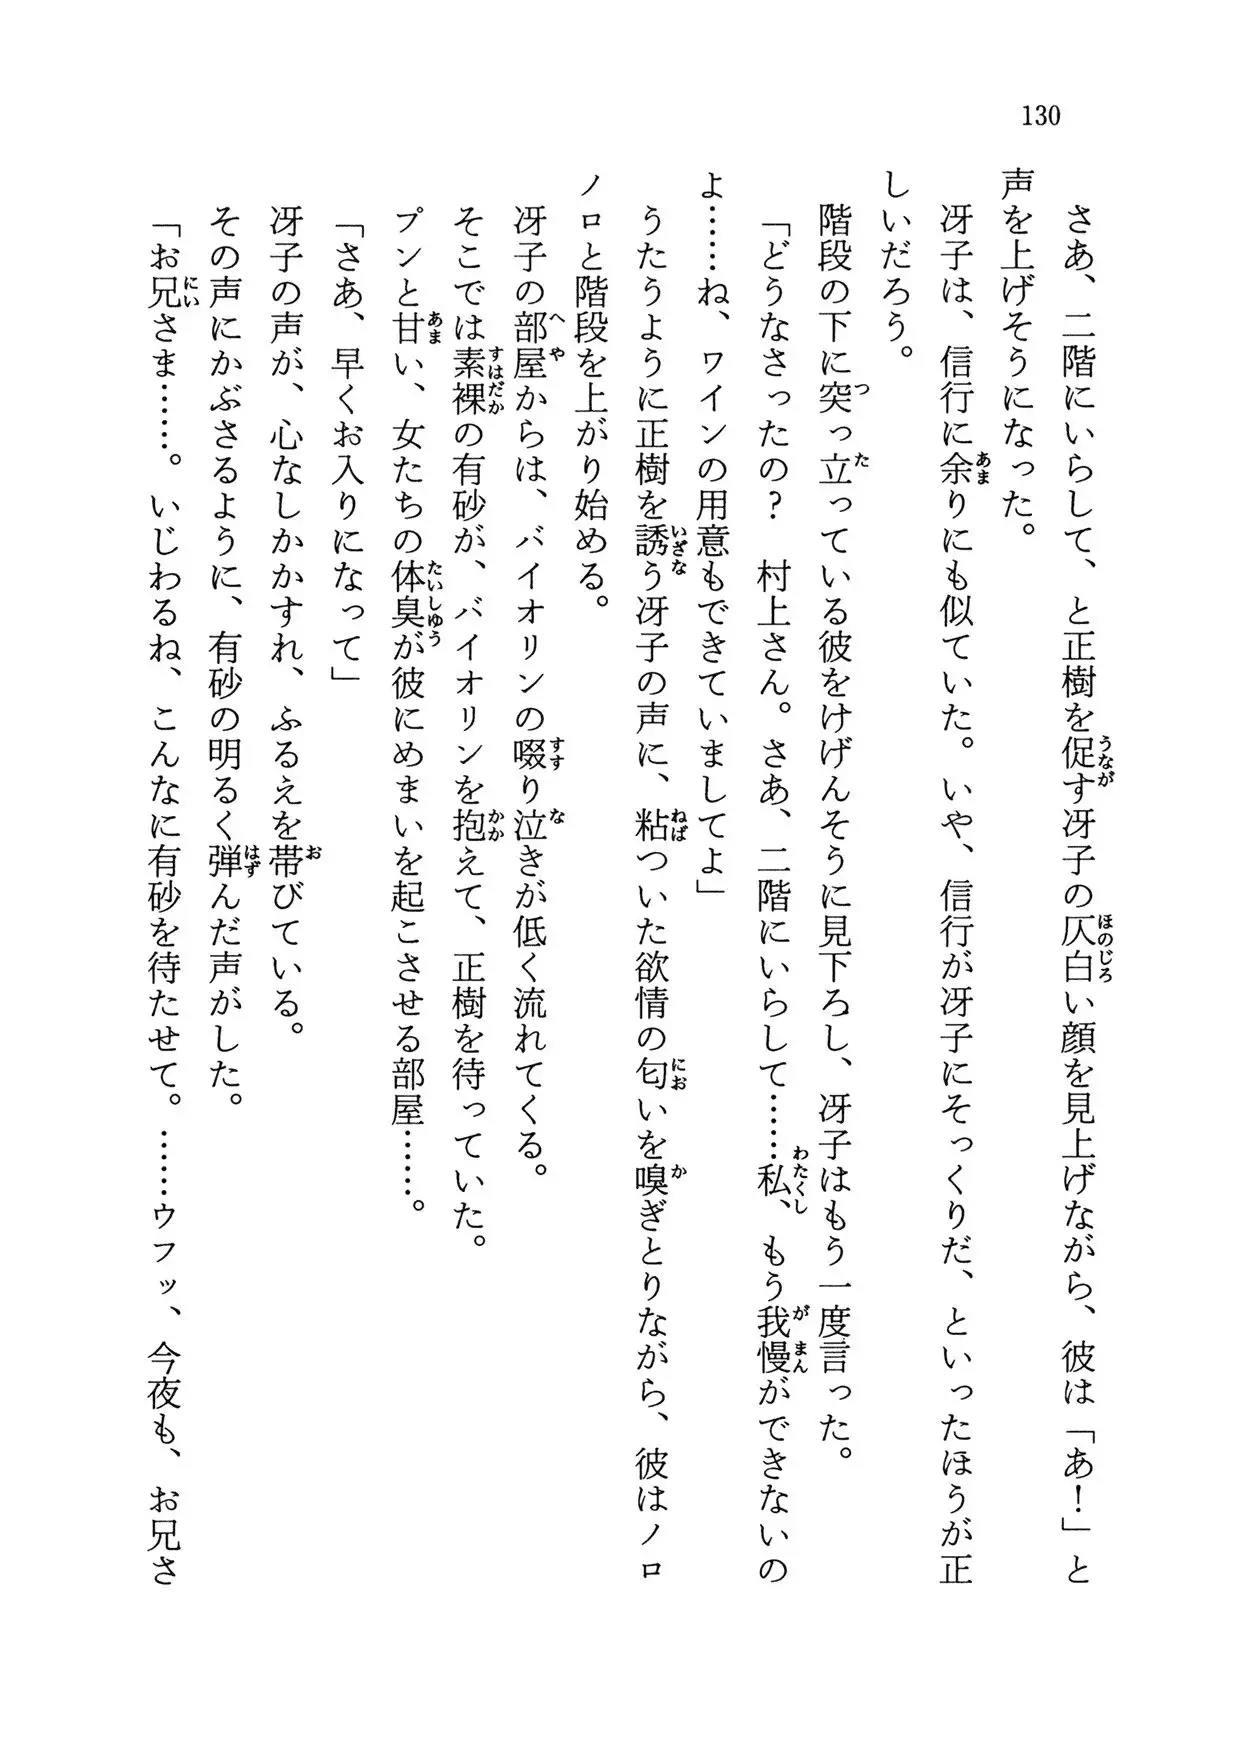 130
さあ、二階にいらして、と正樹を促す冴子の仄白い顔を見上げながら、彼は「あ！」と
声を上げそうになった。
冴子は、信行に余りにも似ていた。いや、信行が冴子にそっくりだ、といったほうが正
しいだろう。
階段の下に突っ立っている彼をけげんそうに見下ろし、冴子はもう一度言った。
「どうなさったの？　村上さん。さあ、二階にいらして……私、もう我慢ができないの
よ……ね、ワインの用意もできていましてよ」
うたうように正樹を誘う冴子の声に、粘ついた欲情の匂いを嗅ぎとりながら、彼はノロ
ノロと階段を上がり始める。
冴子の部屋からは、バイオリンの啜り泣きが低く流れてくる。
そこでは素裸の有砂が、バイオリンを抱えて、正樹を待っていた。
プンと甘い、女たちの体臭が彼にめまいを起こさせる部屋……。
「さあ、早くお入りになって」
冴子の声が、心なしかかすれ、ふるえを帯びている。
その声にかぶさるように、有砂の明るく弾んだ声がした。
「お兄さま……。いじわるね、こんなに有砂を待たせて。……ウフッ、今夜も、お兄さ